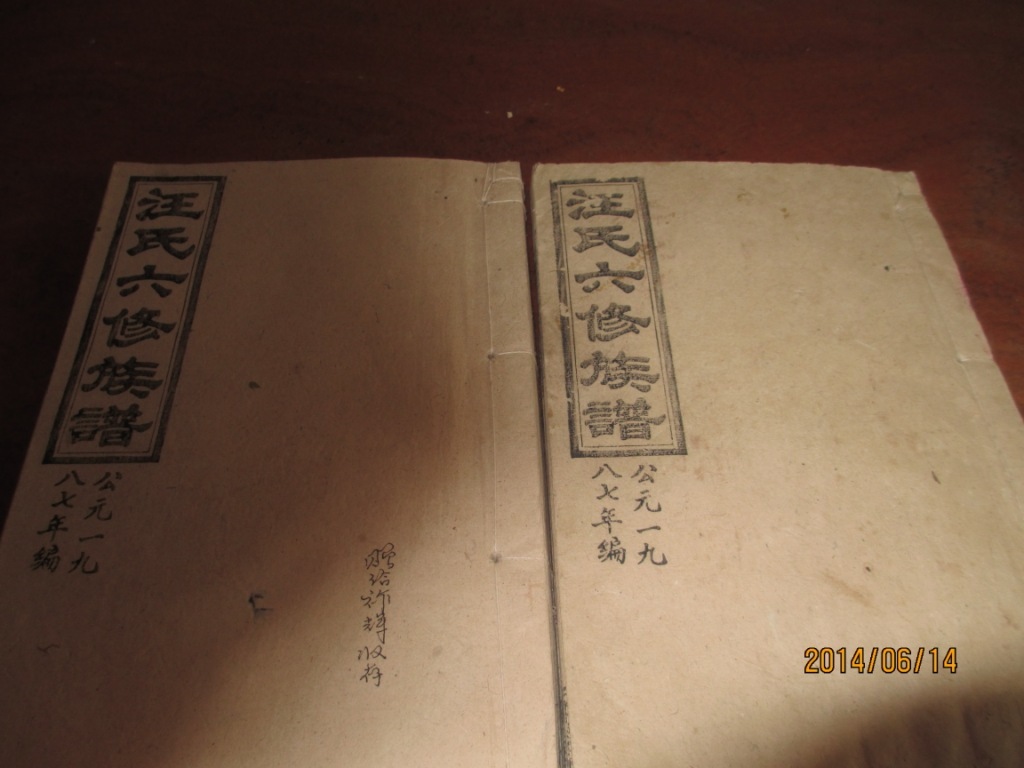 汪氏六修族譜
公元一九
八七年編
赠给祚輝收存
汪氏六修族譜
公元一九
八七年編
2014/06/14